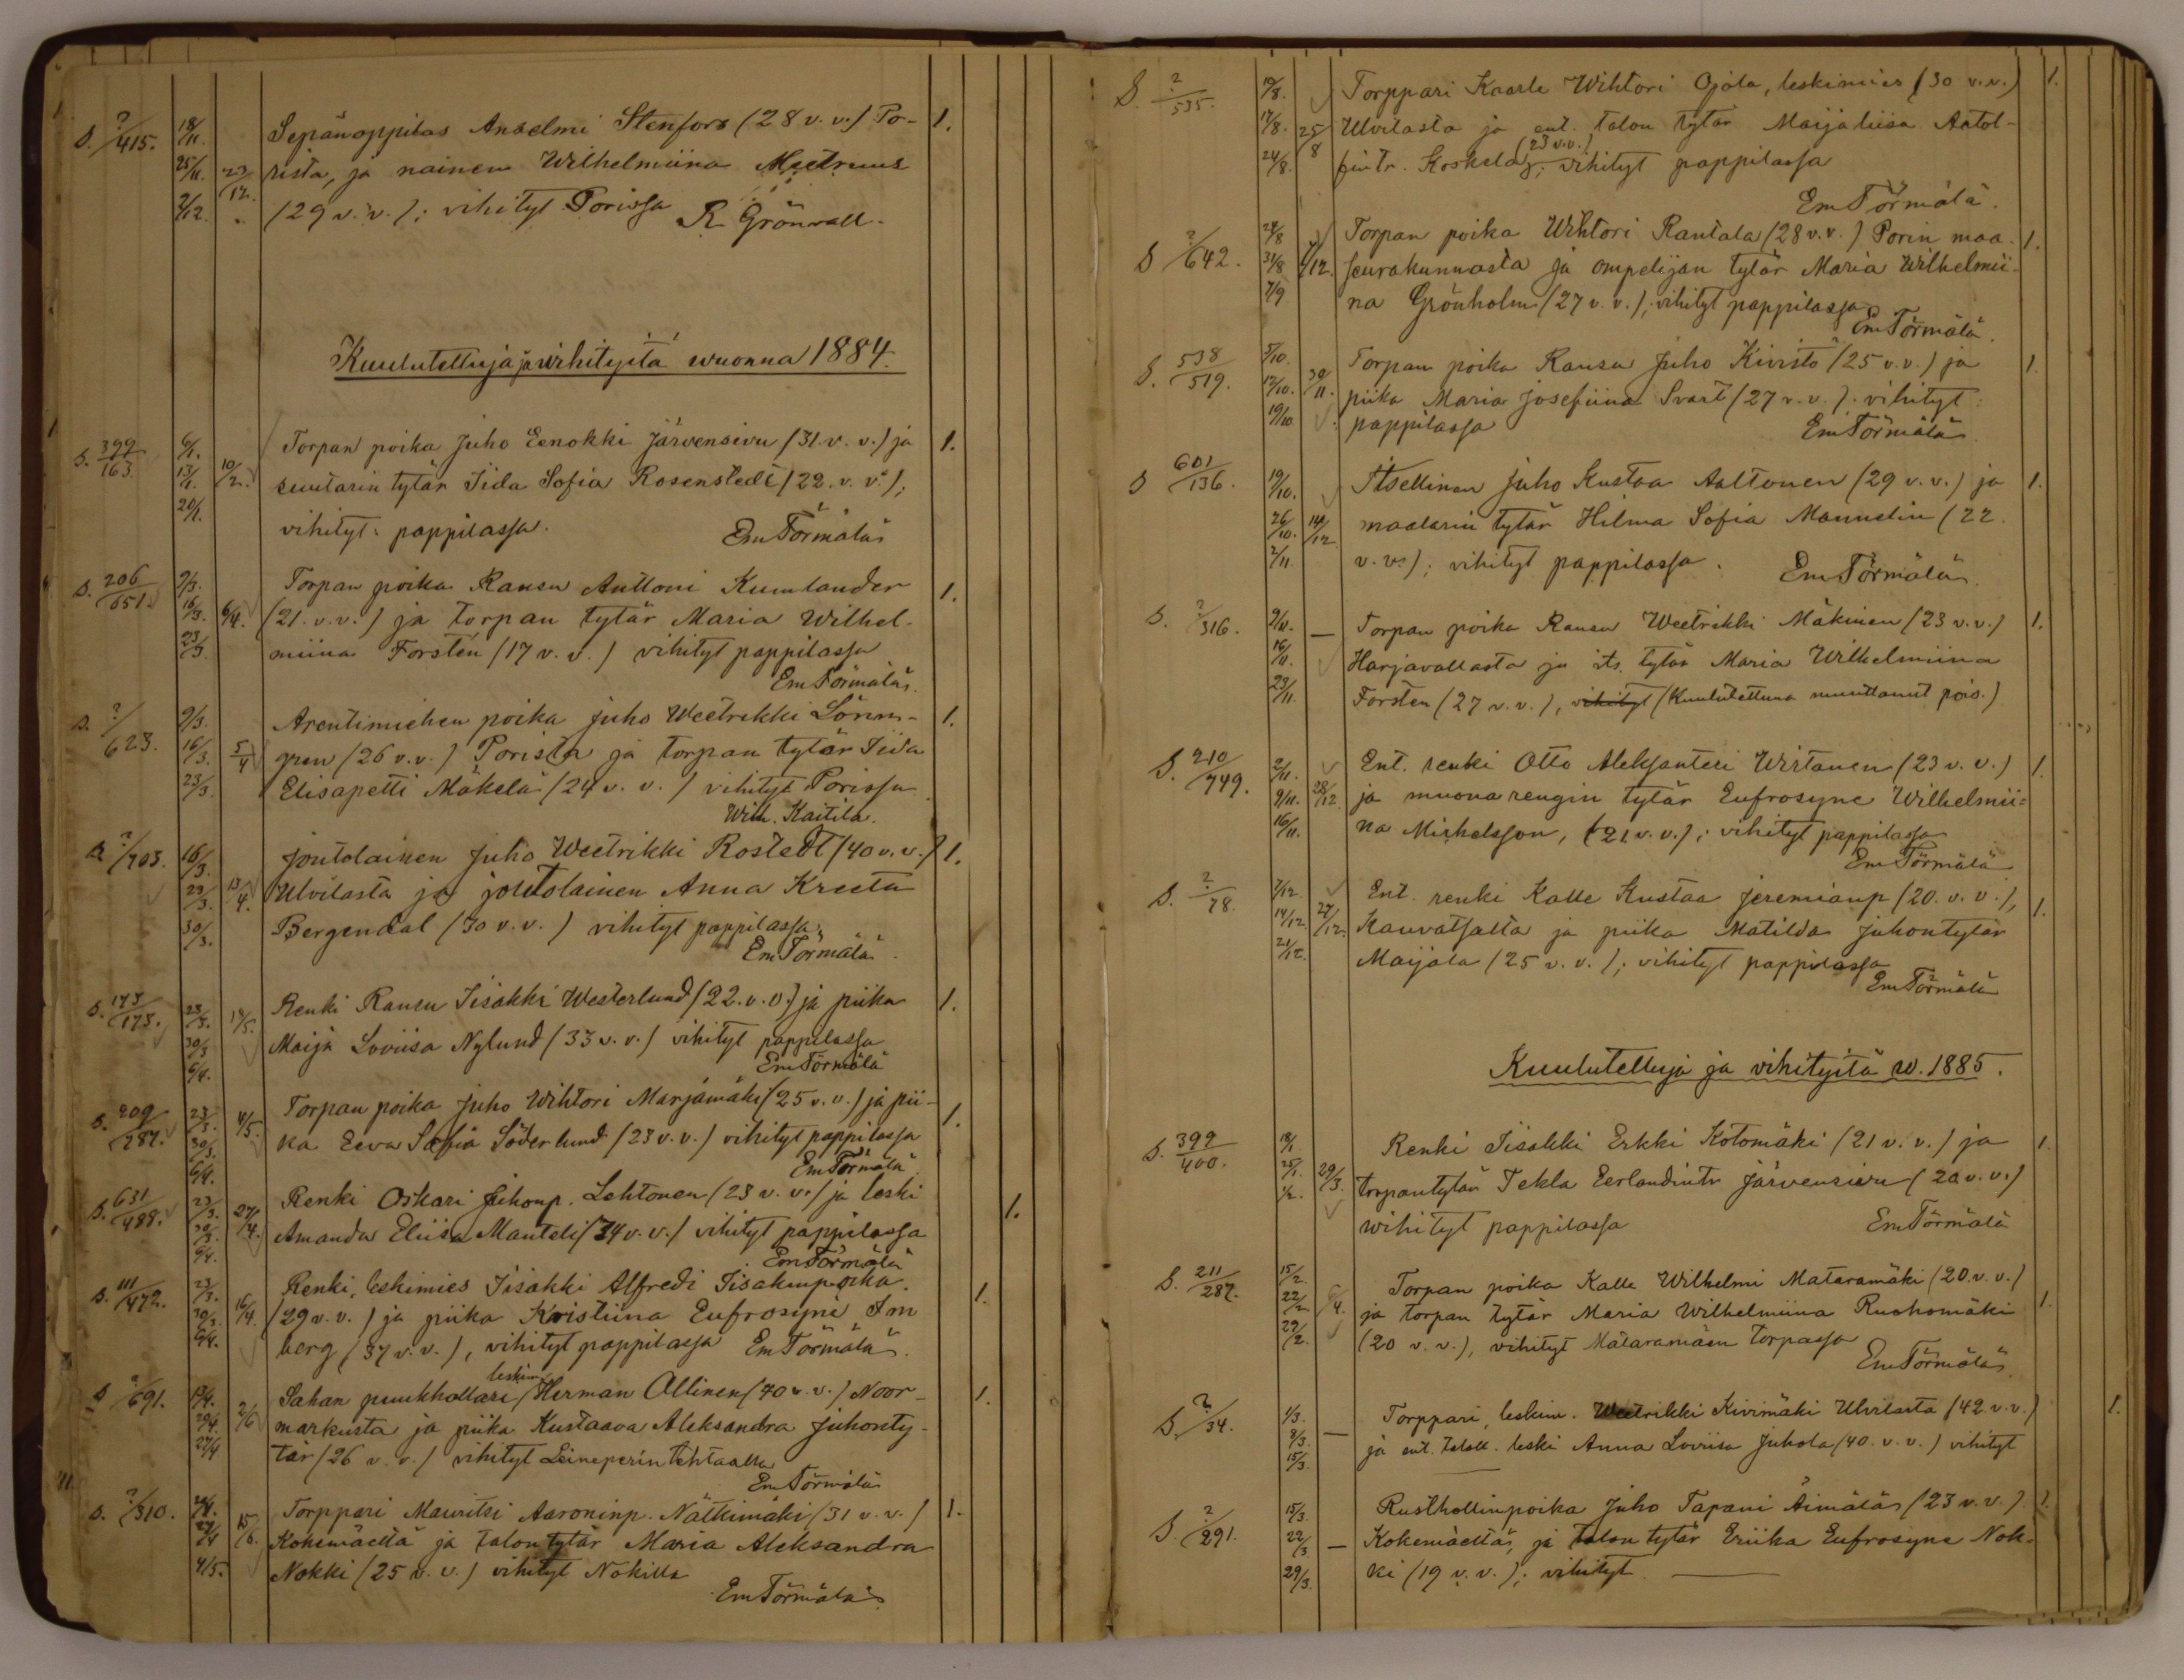 S. ?/415. 18/11. Sepänoppilas Anselmi Stenfors (28 v. v.) Po- 1.
25/11. 23/12. rista, ja nainen Wilhelmiina
2/12. (29 v. v.); vihityt Porissa R Grönvall.
Kuulutettuja ja vihityitä wuonna 1884.
S. 399/163. 6/1. Torpan poika Juho Eenokki Järvensivu (31. v. v.) ja 1.
13/1. 10/2. suutarin tytär Iida Sofia Rosenstedt (22. v. v.);
20/1. vihityt: pappilassa. Em Törmälä
S. 206/651. 9/3. Torpan poika Ransu Anttoni Kumlander 1.
16/3. 6/4. (21. v. v.) ja torpan tytär Maria Wilhel-
23/3. miina Forstén (17 v. v.) vihityt pappilassa
Em Törmälä.
S. ?/623. 9/3. Arentimiehen poika Juho Weetrikki Lönn- 1.
16/3. 5/4 gren (26 v. v.) Porista ja torpan tytär Iida
23/3. Elisapetti Mäkelä (24 v. v.) vihityt Porissa
Wilh. Kaitila.
S ?/703. 16/3. Joutolainen Juho Weetrikki Rostedt (40 v. v.) 1.
23/3. 13/4. Ulvilasta ja joutolainen Anna Kreeta
30/3. Bergendal (30 v. v.) vihityt pappilassa.
Em Törmälä.
S. 173/173. 23/3. 18/5. Renki Ransu Iisakki Westerlund (22. v. v.) ja piika 1.
30/3 Maija Loviisa Nylund (33 v. v.) vihityt pappilassa
6/4. Em Törmälä
S. 209/287. 23/3. 4/5. Torpan poika Juho Wihtori Marjamäki (25 v. v.) ja pii- 1.
30/3. ka Eeva Sofia Söderlund (23 v. v.) vihityt pappilassa
6/4. Em Törmälä.
S. 631/488. 23/3. 27/4. Renki Oskari Juhonp. Lehtonen (23 v. v.) ja leski 1.
30/3. Amanda Eliisa Manteli (34 v. v.) vihityt pappilassa
6/4. Em Törmälä
S. 111/472. 23/3. Renki, leskimies Iisakki Alfredi Iisakinpoika. 1.
30/3. 16/4. (29 v. v.) ja piika Kristiina Eufrosyne Im
6/4. berg (37 v. v.), vihityt pappilassa Em Törmälä.
leskim.
S ?/691. 13/4. Sahan puukhollari Herman Ollinen (40 v. v.) Noor- 1.
20/4. 2/6 markusta ja piika Kustaava Aleksandra Juhonty-
27/4 tär (26 v. v.) vihityt Leineperin tehtaalla
Em Törmälä
S. ?/310. 20/4. Torppari Mauritsi Aaroninp. Nättimäki (31 v. v.) 1.
27/4 15/6. Kokemäeltä ja talon tytär Maria Aleksandra
4/5. Nokki (25 v. v.) vihityt Nokilla
Em Törmälä.
S. ?/535. 10/8. Torppari Kaarle Wihtori Ojala, leskimies (30 v. v.) 1.
17/8. 25/8 Ulvilasta ja ent. talon tytär Maijaliisa Antol-
(23 v. v.)
24/8. fintr. Koskela; vihityt pappilassa
Em Törmälä.
S ?/642. 24/8 Torpan poika Wihtori Rantala (28 v. v.) Porin maa- 1.
31/8 7/12. seurakunnasta ja ompelijan tytär Maria Wilhelmii-
7/9 na Grönholm (27 v. v.); vihityt pappilassa
Em Törmälä.
S. 538/519. 5/10. Torpan poika Ransu Juho Kivistö (25 v. v.) ja 1.
12/10. 30/11. piika Maria Josefiina Svart (27 v. v.). vihityt:
19/10 pappilassa Em Törmälä
S 601/136. 19/10. Itsellinen Juho Kustaa Aaltonen (29 v. v.) ja 1.
26/10. 14/12. maalarin tytär Hilma Sofia Mannelin (22.
2/11. v. v.); vihityt pappilassa. Em Törmälä.
S. ?/316. 9/11. — Torpan poika Ransu Weetrikki Mäkinen (23 v. v.) 1.
16/11. Harjavallasta ja its. tytär Maria Wilhelmiina
23/11. Forsten (27 v. v.), vihityt (Kuulutettuna muuttanut pois.)
S. 210/749. 2/11. Ent. renki Otto Aleksanteri Wirtanen (23 v. v.) 1.
9/11. 28/12. ja muonarengin tytär Eufrosyne Wilhelmii=
16/11. na Michelsson, (21 v. v.); vihityt pappilassa
Em Törmälä
S. ?/78. 7/12 Ent. renki Kalle Kustaa Jeremianp (20. v. v.), 1.
14/12. 27/12. Kauvatsalta ja piika Matilda Juhontytär
21/12. Maijala (25 v. v.); vihityt pappilassa
Em Törmälä
Kuulutettuja ja vihityitä w. 1885.
S. 399/400. 18/1 Renki Iisakki Erkki Kotomäki (21 v. v.) ja 1.
25/1. 29/3. torpantytär Tekla Eerlandintr Järvensivu (20 v. v.)
1/2. wihityt pappilassa Em Törmälä
S. 211/287. 15/2. Torpan poika Kalle Wilhelmi Mataramäki (20. v. v.)
22/2 6/4. ja torpan tytär Maria Wilhelmiina Ruohomäki 1.
22/2. (20 v. v.), vihityt Mataramäen torpassa
Em Törmälä.
S. ?/34. 1/3. Torppari, leskim. Weetrikki Kivimäki Ulvilasta (42 v. v.) 1.
8/3. — ja ent. taloll. leski Anna Loviisa Juhola (40. v. v.) vihityt
15/3.
S. ?/291. 15/3. Rusthollinpoika Juho Tapani Äimälä (23 v. v.) 1.
22/3 — Kokemäeltä, ja talon tytär Eriika Eufrosyne Nok-
29/3. ki (19 v. v.); vihityt —